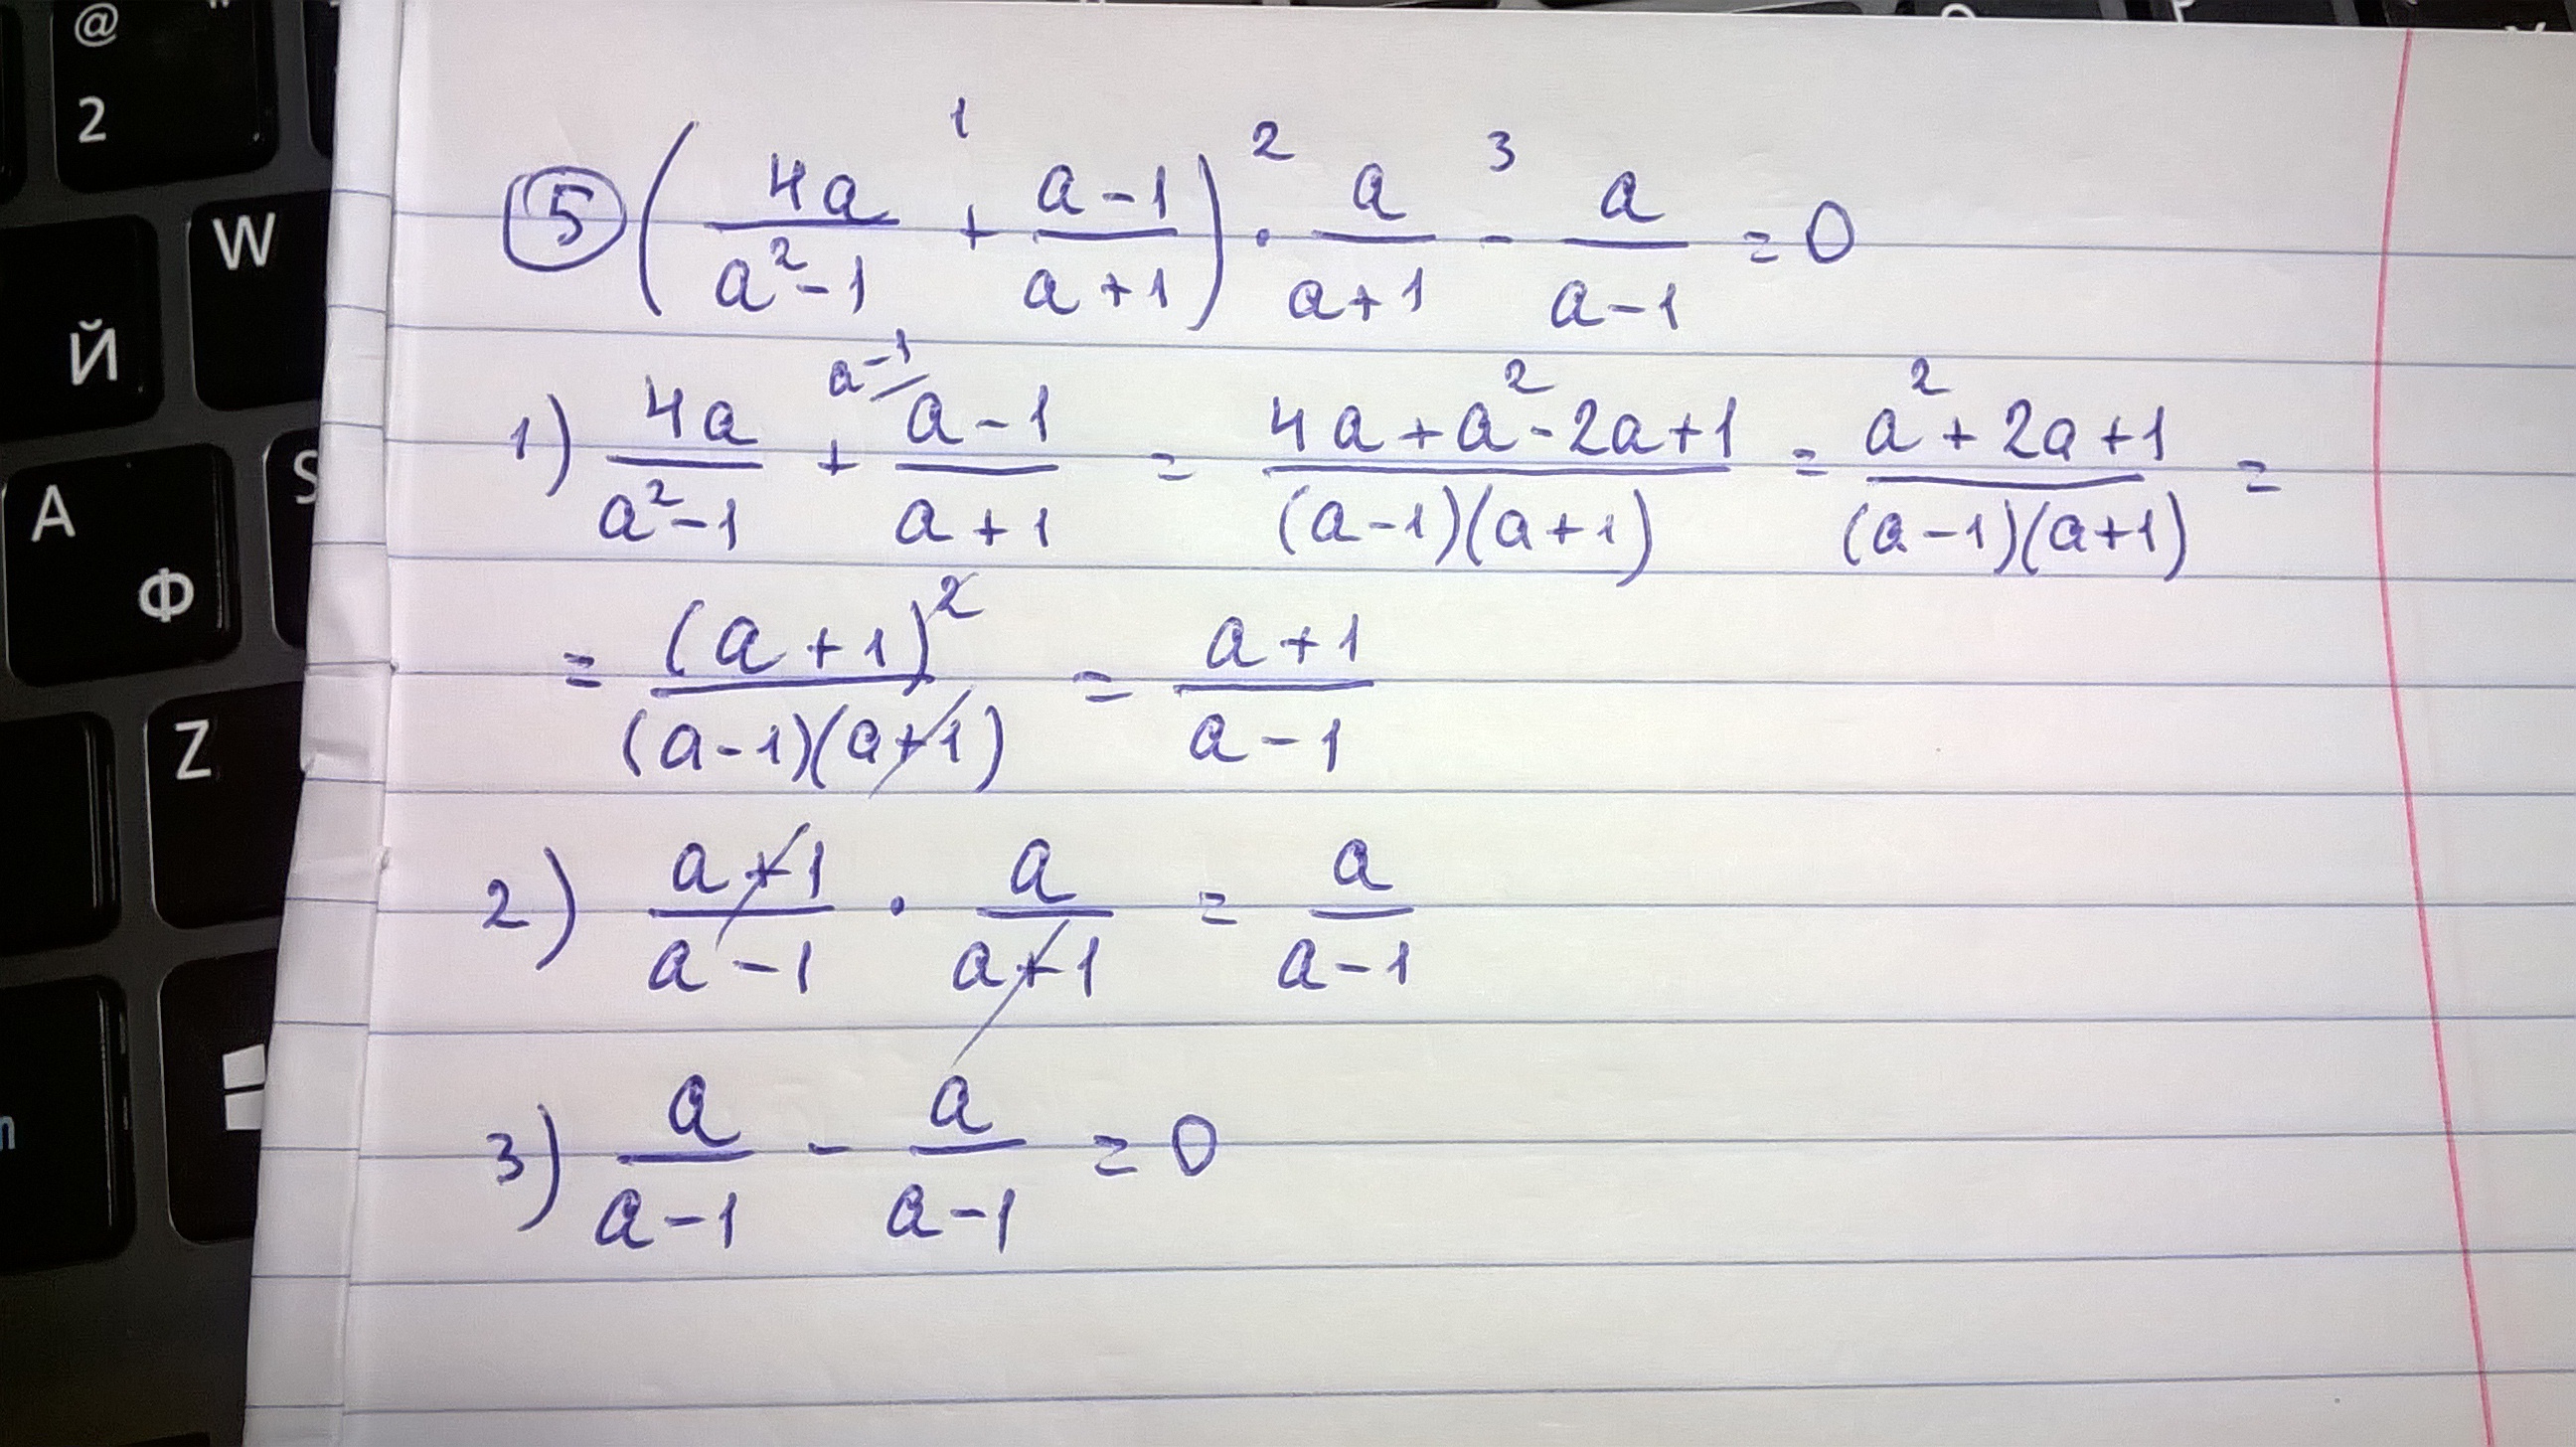 @
2
W
Й
A
Ф
S
Z
⑤ (4a/(a²-1) + (a-1)/(a+1)) · a/(a+1) - a/(a-1) = 0
1 2 3
1) 4a/(a²-1) + ᵃ⁻¹/ (a-1)/(a+1) = (4a+a²-2a+1)/((a-1)(a+1)) = (a²+2a+1)/((a-1)(a+1)) =
= (a+1)²/((a-1)(a+1)) = (a+1)/(a-1)
2) (a+1)/(a-1) · a/(a+1) = a/(a-1)
3) a/(a-1) - a/(a-1) = 0